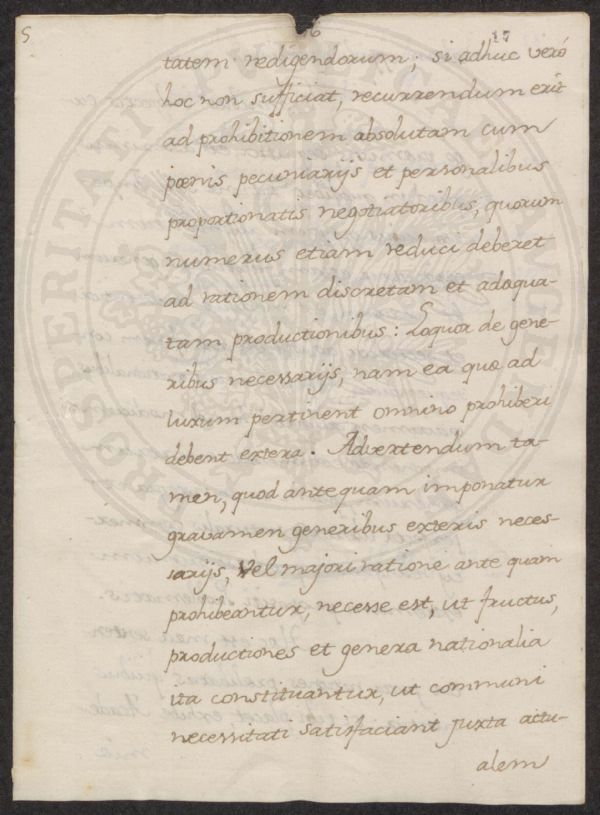 5 16 17
tatem redigendorum; si adhuc veró
hoc non sufficiat, recurrendum erit
ad prohibitionem absolutam cum
poenis pecuniarijs et personalibus
proportionatis negotiatoribus, quorum
numerus etiam reduci deberet
ad rationem discretam et adaequa-
tam productionibus: Loquor de gene-
ribus necessarijs, nam ea quae ad
luxum pertinent omnino prohiberi
debent extera. Advertendum ta-
men, quod ante quam imponatur
gravamen generibus exteris neces-
sarijs, vel majori ratione ante quam
prohibeantur, necesse est, ut fructus,
productiones et genera nationalia
ita constituantur, ut communi
necessitati satisfaciant juxta actu-
alem